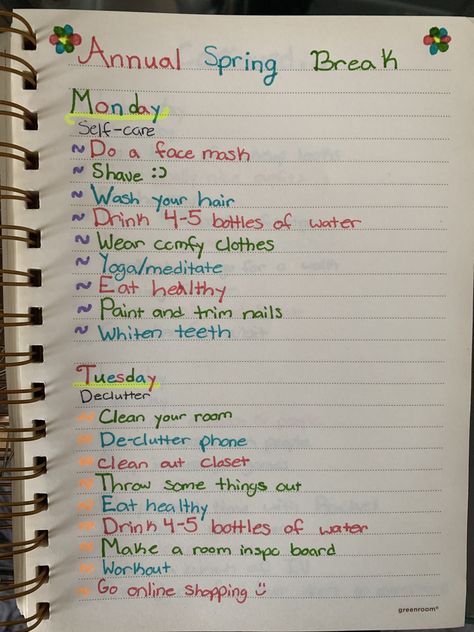 Annual Spring Break
Monday
Self-care
~ Do a face mask
~ Shave :)
~ Wash your hair
~ Drink 4-5 bottles of water
~ Wear comfy clothes
~ Yoga/meditate
~ Eat healthy
~ Paint and trim nails
~ Whiten teeth
Tuesday
Declutter
~ Clean your room
~ De-clutter phone
~ Clean out closet
~ Throw some things out
~ Eat healthy
~ Drink 4-5 bottles of water
~ Make a room inspo board
~ Workout
~ Go online shopping :)
greenroom®